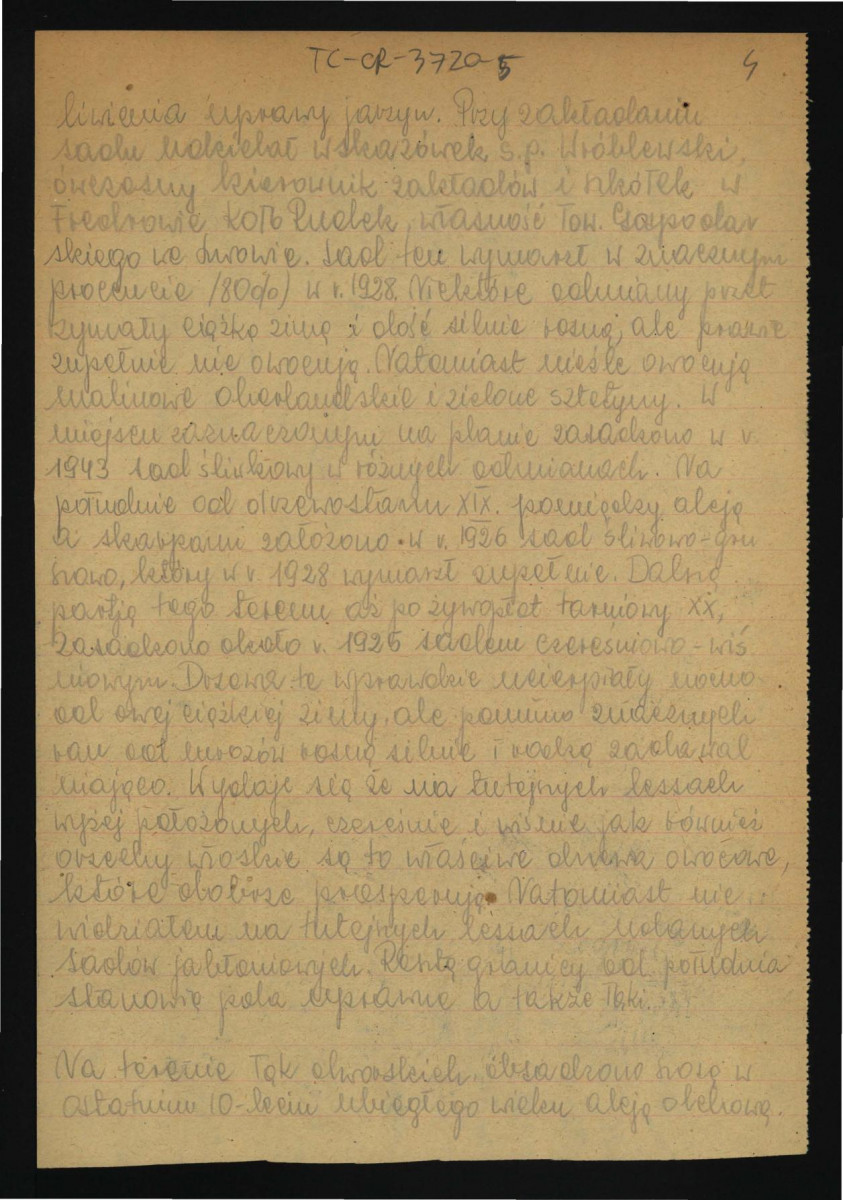 TC-CR-3720-5 4
liwienia uprawy jarzyn. Przy zakładaniu
sadu udzielał wskazówek ś.p. Wróblewski,
ówczesny kierownik zakładów i szkółek w
Fredrowie koło Rudek, własność Tow. Gospodar
skiego we Lwowie. Sad ten wymarzł w znacznym
procencie /80%) w r. 1928. Niektóre odmiany przet
rzymały ciężką zimę i dość silnie rosną, ale prawie
zupełnie nie owocują. Natomiast nieźle owocują
malinowe oberlandzkie i zielone sztetyny. W
miejscu zaznaczonym na planie zasadzono w r.
1943 sad śliwkowy w różnych odmianach. Na
południe od drzewostanu XIX. pomiędzy aleją
a skarpami założono w r. 1926 sad śliwowo-gru
szowo, który w r. 1928 wymarzł zupełnie. Dalszą
partję tego terenu aż po żywopłot tarniowy XX,
zasadzono około r. 1925 sadem czereśniowo-wiś
niowym. Drzewa te wprawdzie ucierpiały mocno
od owej ciężkiej zimy, ale pomimo znacznych
ran od mrozów rosną silnie i rodzą zadawal
niająco. Wydaje się że na tutejszych lessach
wyżej położonych, czereśnie i wiśnie jak również
orzechy włoskie są to właściwe drzewa owocowe,
które dobrze prosperują. Natomiast nie
widziałem na tutejszych lessach udanych
sadów jabłoniowych. Resztę granicy od południa
stanowią pola uprawne a także łąki.
Na terenie łąk dworskich obsadzono szosę w
ostatnim 10-leciu ubiegłego wieku aleją olchową.